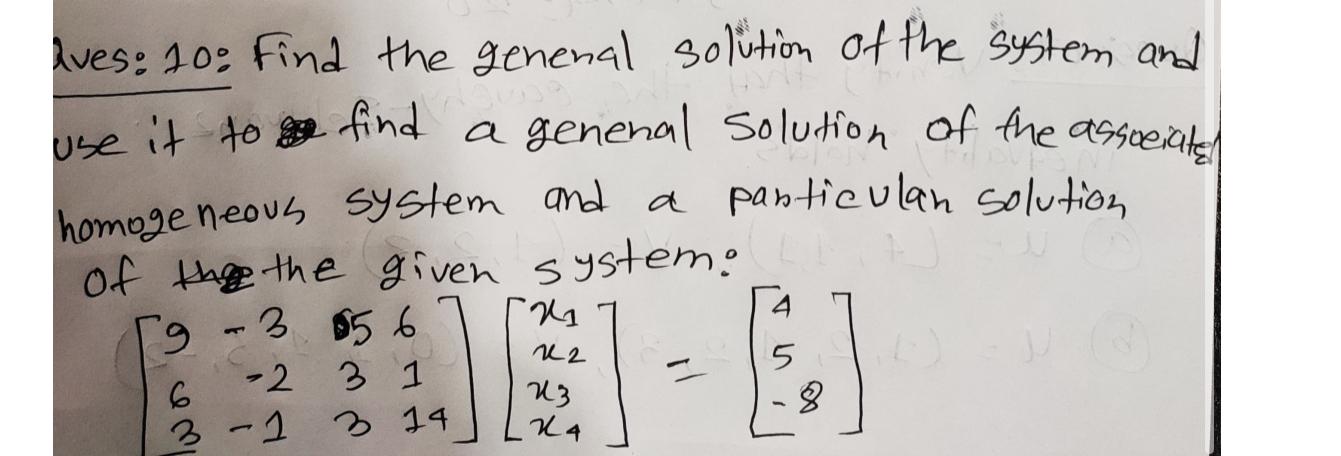 Ques: 10: Find the general solution of the system and
use it to find a general solution of the associated
homogeneous system and a particular solution
of the given system:
[9 -3 5 6] [x1] [4]
[6 -2 3 1] [x2] = [5]
[3 -1 3 14] [x3] [-8]
[x4]